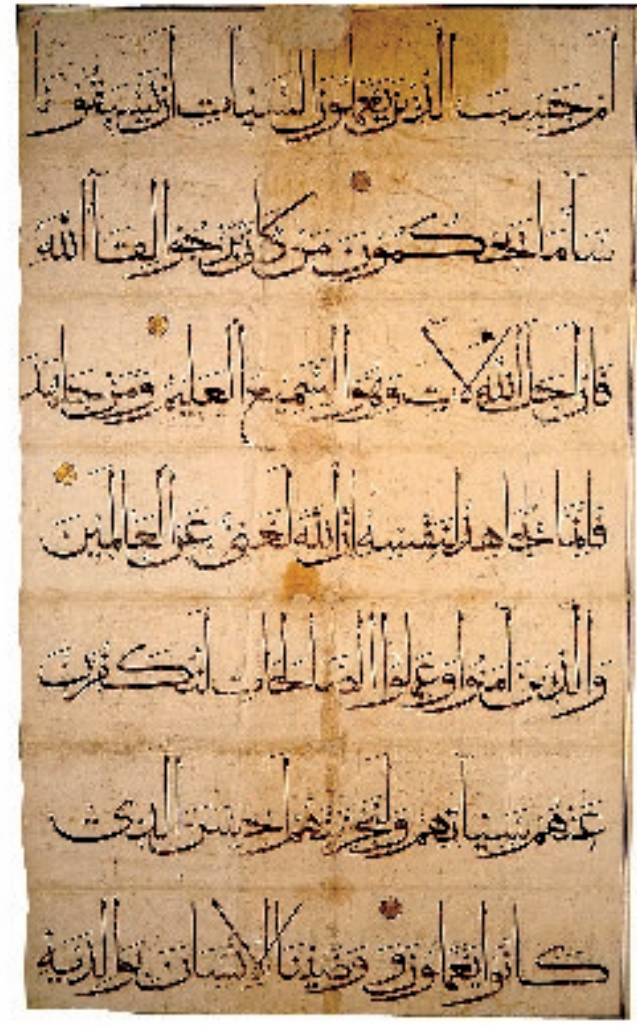 ام حسب الذين يعملون السيئات ان يسبقونا
سآء ما يحكمون من كان يرجوا لقآء الله
فان اجل الله لات وهو السميع العليم ومن جاهد
فانما يجاهد لنفسه ان الله لغني عن العالمين
والذين آمنوا وعملوا الصالحات لنكفرن
عنهم سيئاتهم ولنجزينهم احسن الذي
كانوا يعملون ووصينا الانسان بوالديه